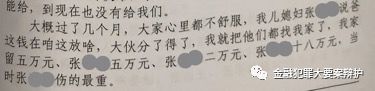 能给，到现在也没有给我们。
大概过了几个月，大家心里都不舒服，我儿媳妇张说爸
这钱在咱这放啥，大伙分了得了，我就把他们都找我家了，我家
留五万元、张五万元、张二万元、张十八万元，当
时张伤的最重。
金融犯罪大要案辩护